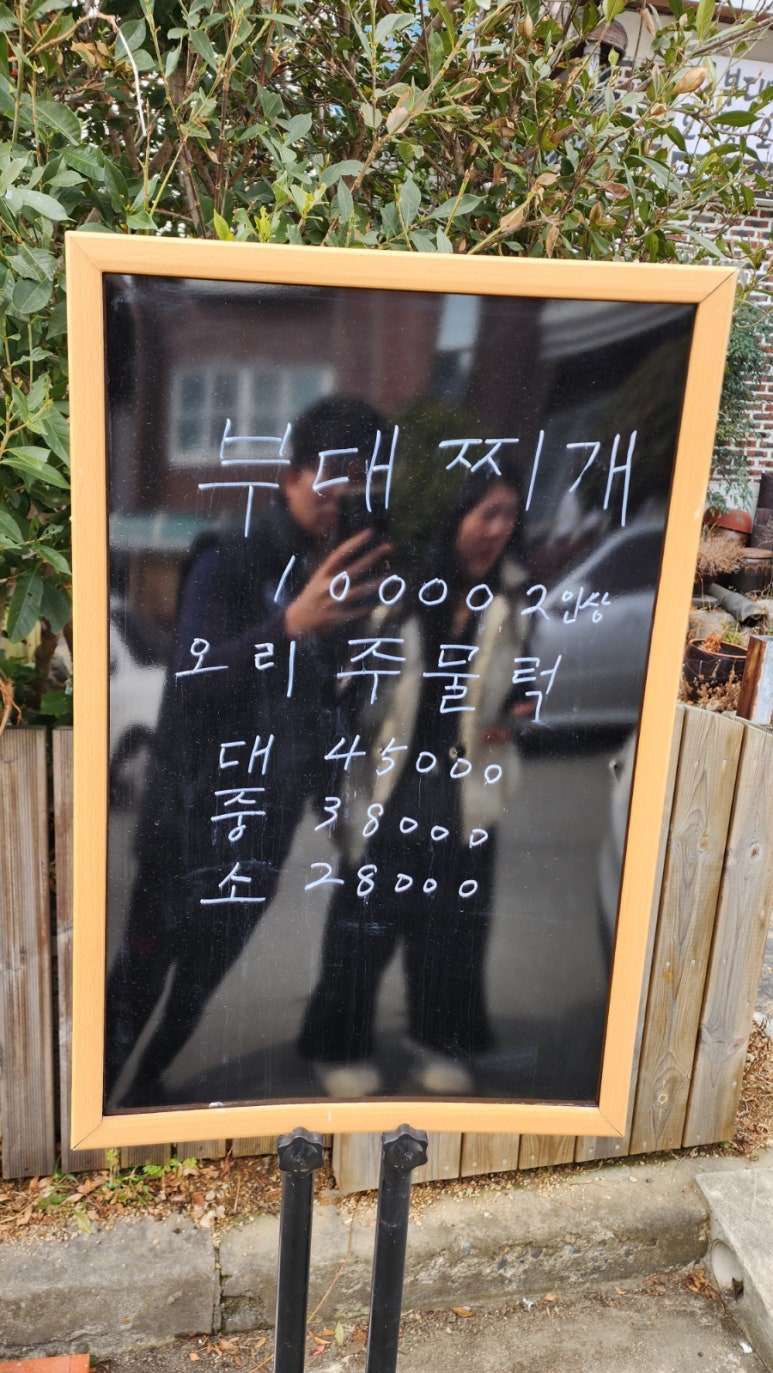 부대찌개
10000 2인상
오리 주물턱
대 45000
중 38000
소 28000